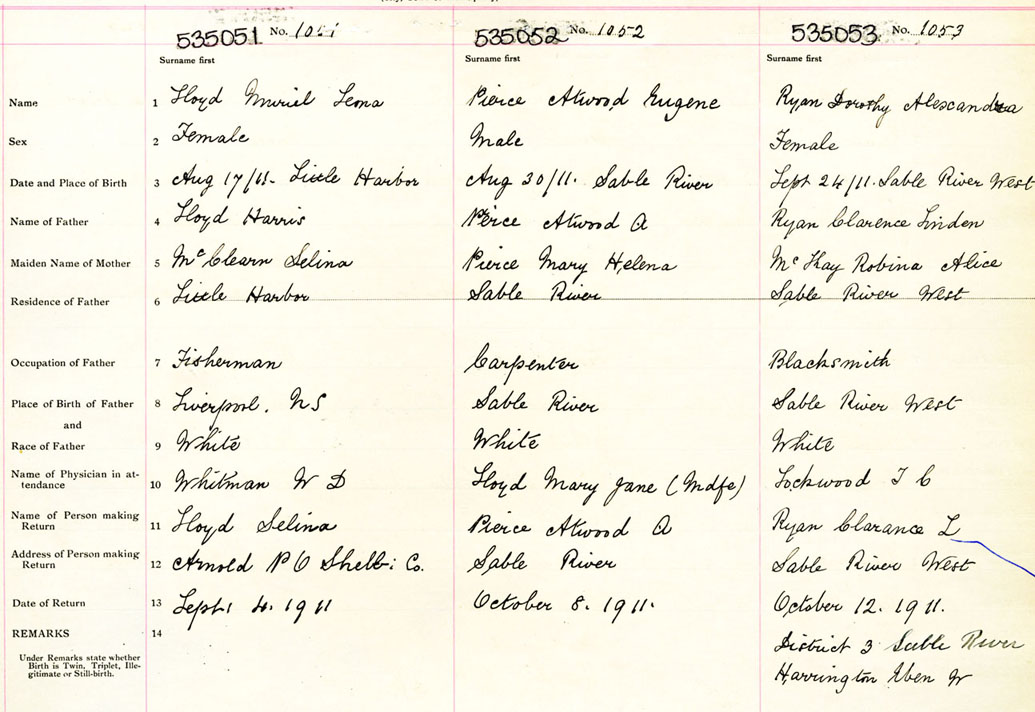 535051 No. 1051 535052 No. 1052 535053 No. 1053
Surname first Surname first Surname first
Name 1 Lloyd Muriel Leona Pierce Atwood Eugene Ryan Dorothy Alexcandra
Sex 2 Female Male Female
Date and Place of Birth 3 Aug 17/11. Little Harbor Aug 30/11. Sable River Sept 24/11. Sable River West
Name of Father 4 Lloyd Harris Pierce Atwood A Ryan Clarence Linden
Maiden Name of Mother 5 McClearn Selina Pierce Mary Helena McKay Robina Alice
Residence of Father 6 Little Harbor Sable River Sable River West
Occupation of Father 7 Fisherman Carpenter Blacksmith
Place of Birth of Father 8 Liverpool. NS Sable River Sable River West
and
Race of Father 9 White White White
Name of Physician in at-
tendance 10 Whitman W D Lloyd Mary Jane (Mdfe) Lockwood T C
Name of Person making
Return 11 Lloyd Selina Pierce Atwood A Ryan Clarance L
Address of Person making
Return 12 Arnold P O Shelb: Co. Sable River Sable River West
Date of Return 13 Sept. 4. 1911 October 8. 1911. October 12. 1911.
REMARKS 14 District 3 Sable River
Under Remarks state whether
Birth is Twin, Triplet, Ille-
gitimate or Still-birth. Harrington Eben W